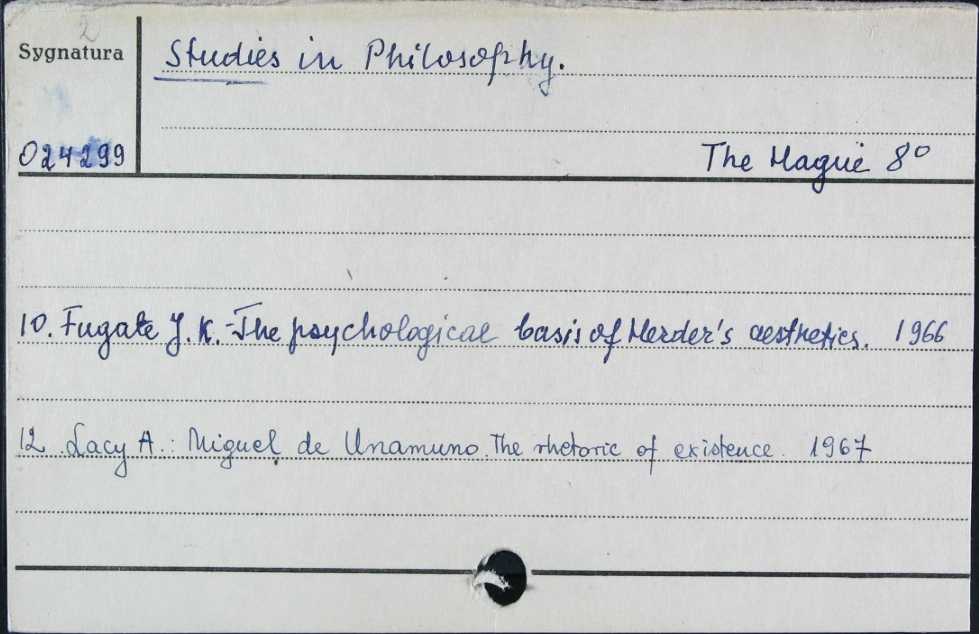 2
Sygnatura
Studies in Philosophy.
024299
The Hague 8°
10. Fugate J. K. - The psychological basis of Herder's aesthetics. 1966
12 Lacy A.: Miguel de Unamuno. The rhetoric of existence. 1967